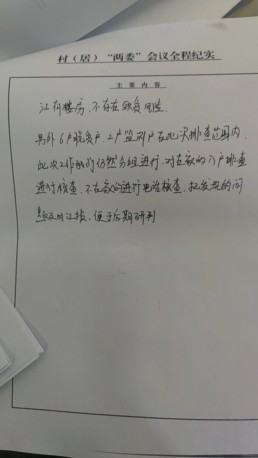 村（居）“两委”会议全程纪实
主 要 内 容
江有楼房，不存在致贫风险
另外6户脱贫户，2户监测户在此次排查范围内
此次工作我们仍然分组进行，对在家的入户排查
进行核查，不在家的进行电话核查，把发现的问
题及时记接，便于后期研判